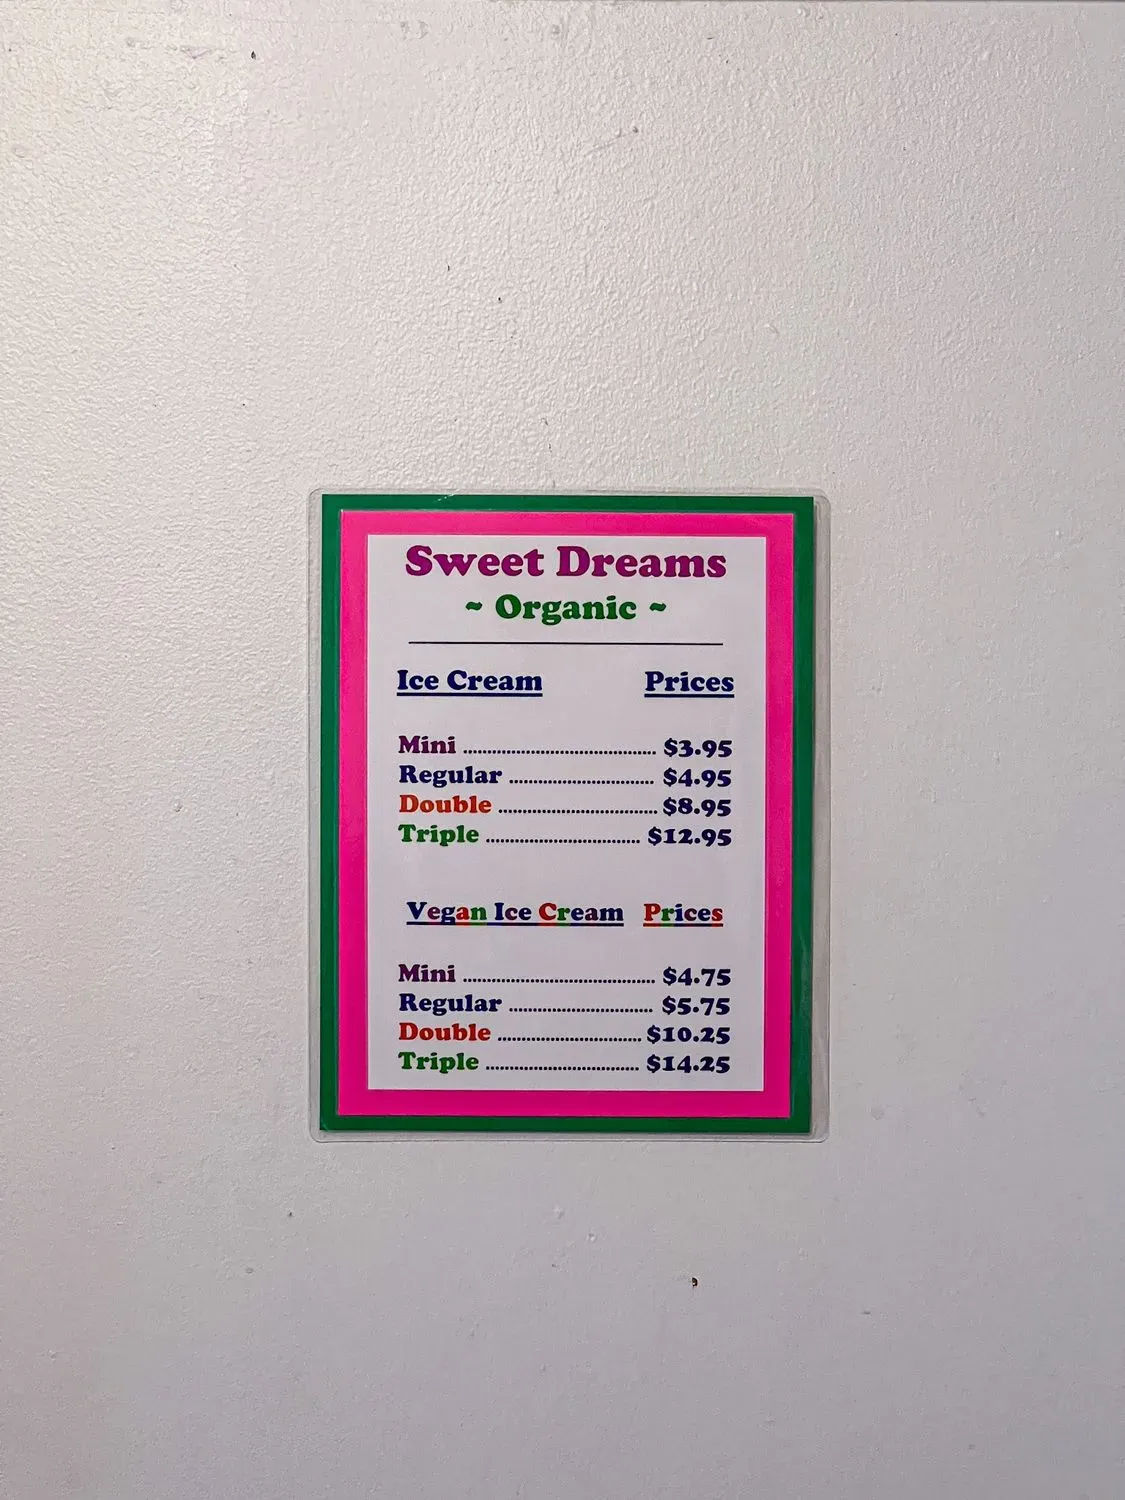 Sweet Dreams
~ Organic ~
Ice Cream Prices
Mini ........................................................ $3.95
Regular .......................................... $4.95
Double .............................................. $8.95
Triple ............................................. $12.95
Vegan Ice Cream Prices
Mini ........................................................ $4.75
Regular .......................................... $5.75
Double .......................................... $10.25
Triple ............................................. $14.25